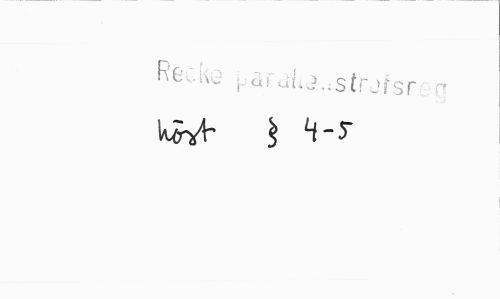 Recke parallellstrofsreg
höst § 4-5